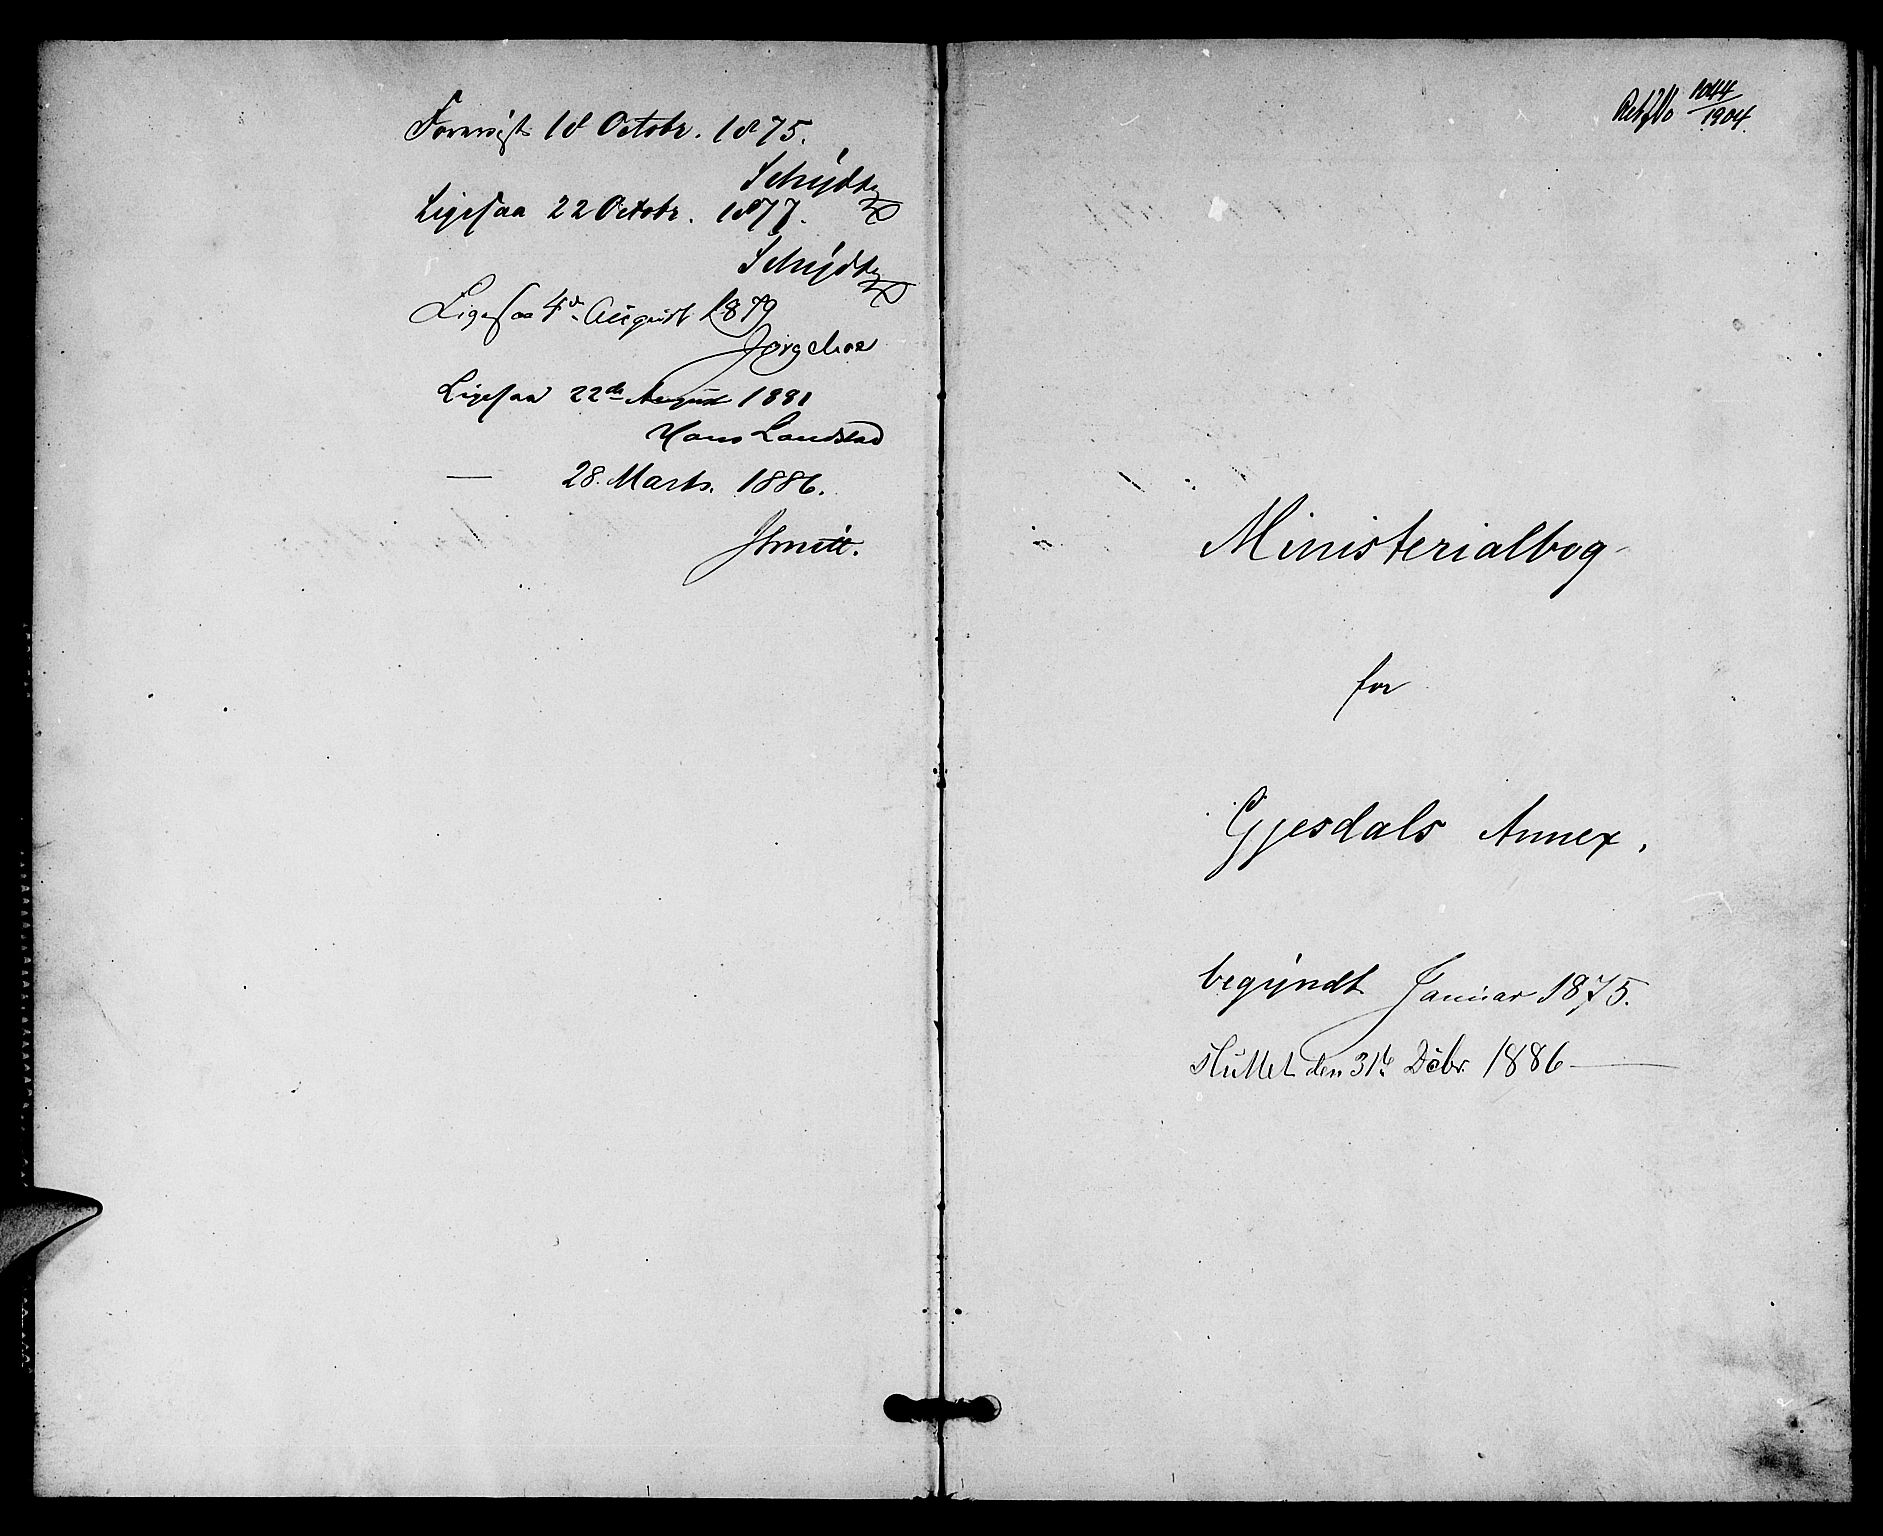 Forevist 18 Octobr. 1875.
Schjøtt
Ligesaa 22 Octobr. 1877.
Schjøtt
Ligesaa 4de August 1879
Ligesaa 22de August 1881
Hans Landstad
— 28. Marts. 1886.
Smitt.
1044/1904.
Ministerialbog
for
Gjesdals Annex.
begÿndt Januar 1875.
sluttet den 31te Dcbr. 1886 —